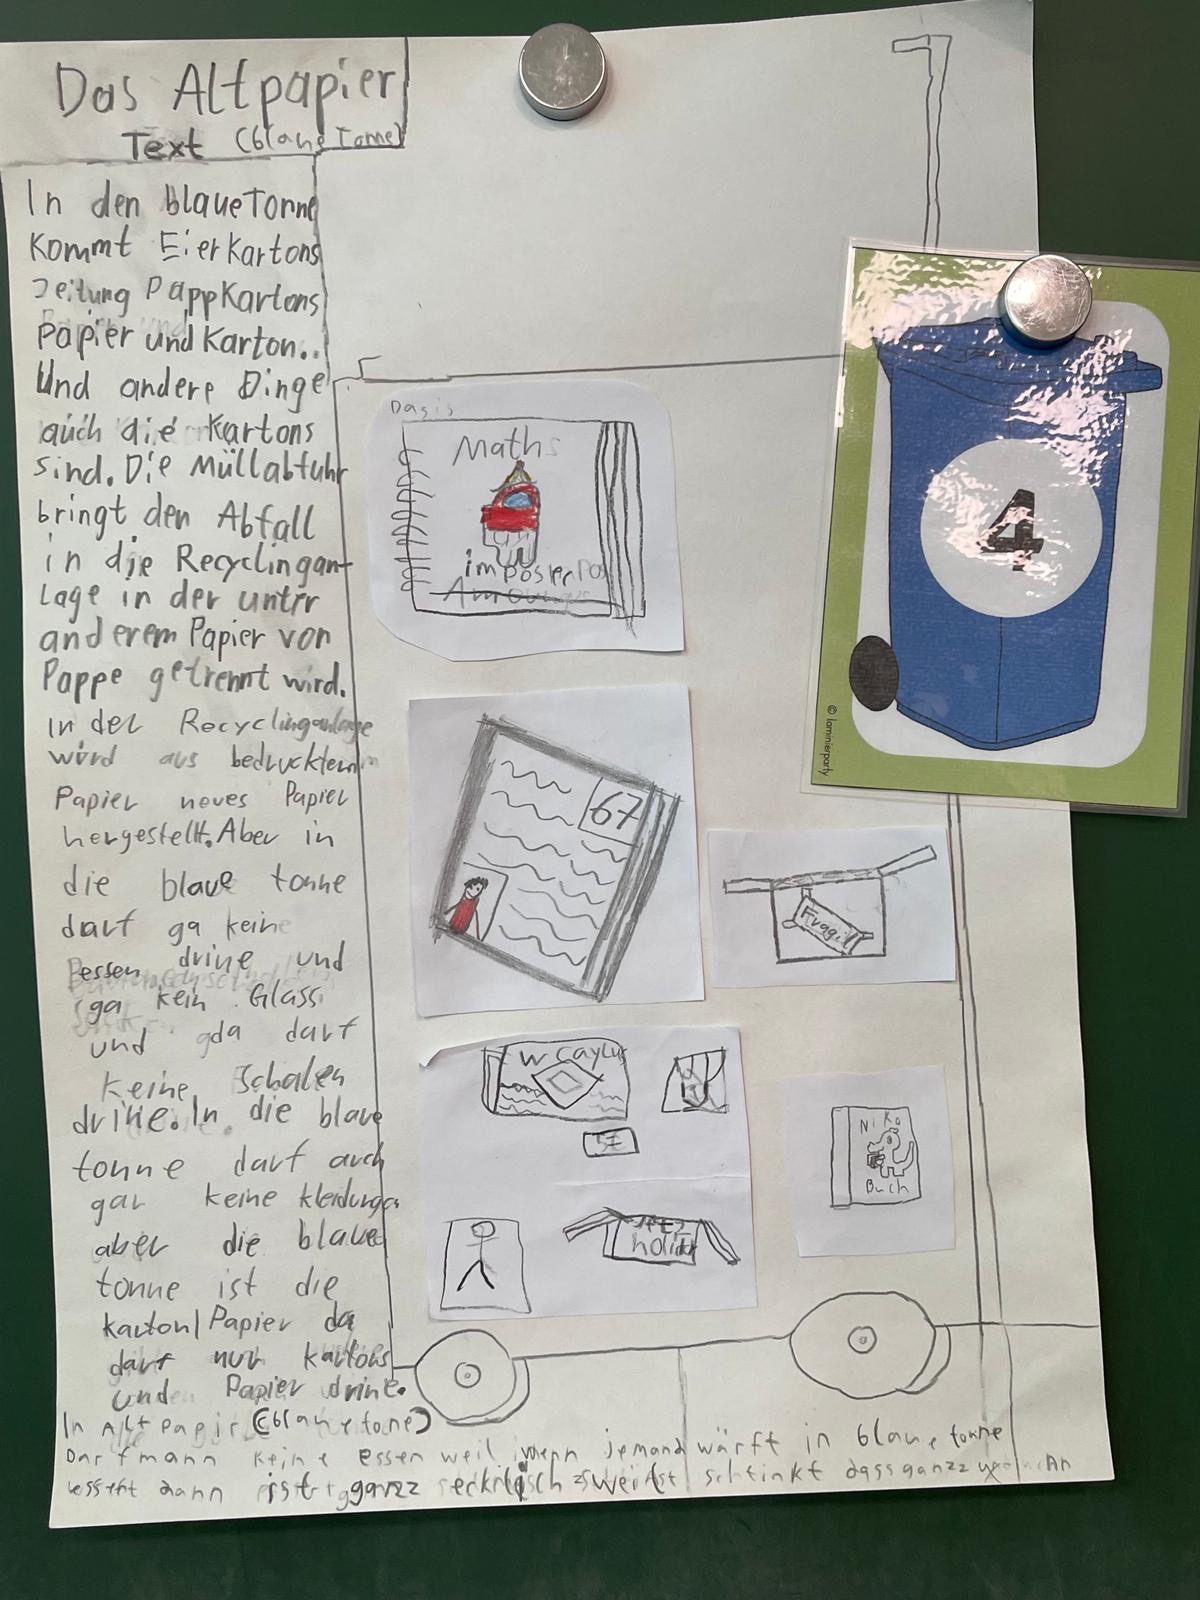 Das Altpapier
Text (blaue Tonne)
In den blaue Tonne
kommt Eierkartons
Zeitung Pappkartons
Papier und Karton..
Und andere Dinge
auch die Kartons
sind. Die Müllabfuhr
bringt den Abfall
in die Recyclingan-
lage in der unter
anderem Papier von
Pappe getrennt wird.
In der Recyclinganlage
wird aus bedrucktem
Papier neues Papier
hergestellt. Aber in
die blaue tonne
darf ga keine
essen drine und
ga kein Glass
und gda darf
keine Schalen
drine. In die blaue
tonne darf auch
gar keine kleidungen
aber die blaue
tonne ist die
karton/Papier da
darf nur kartons
und Papier drine.
In Altpapir (blaue tone)
Darfmann keine essen weil wenn jemand wärft in blaue tonne
dann ist ganzz schtinkt dass ganzz
Das is
Maths
imposter
67
Fragil
57
holida
Niko
Buch
4
© laminierparty